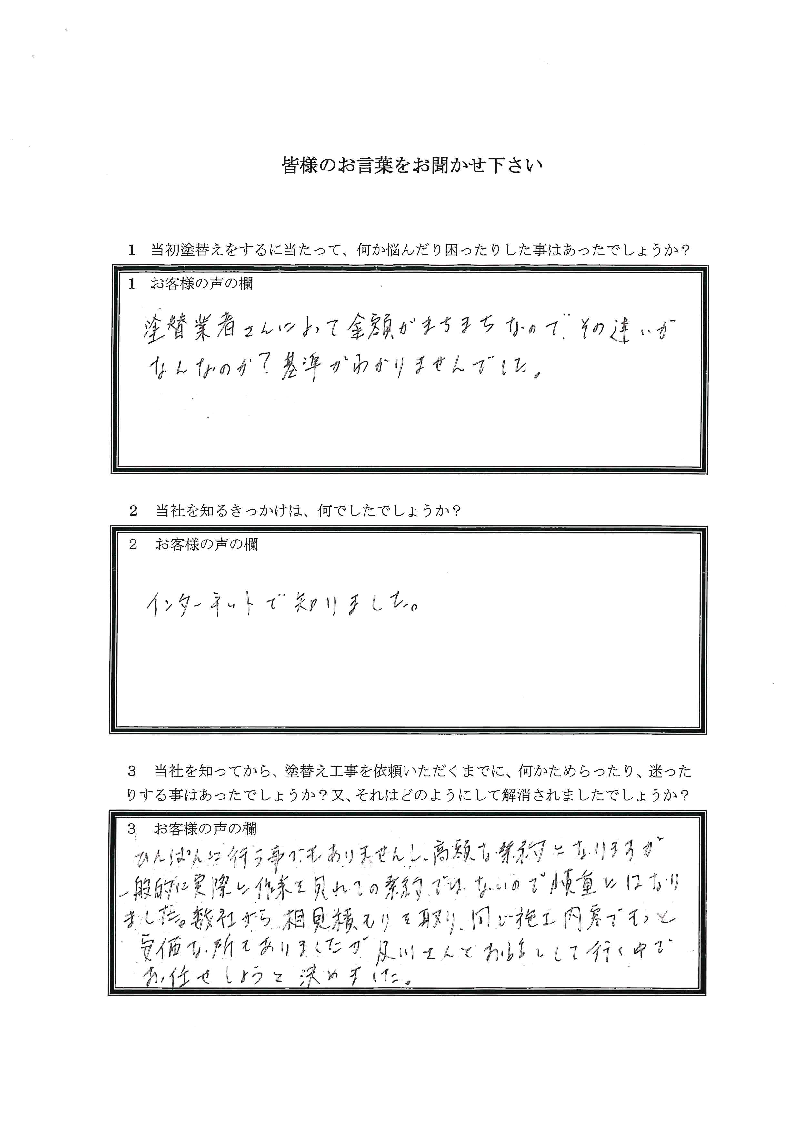 皆様のお言葉をお聞かせ下さい
1 当初塗替えをするに当たって、何か悩んだり困ったりした事はあったでしょうか？
1 お客様の声の欄
塗替業者さんによって金額がまちまちなので、その違いが
なんなのか？基準がわかりませんでした。
2 当社を知るきっかけは、何でしたでしょうか？
2 お客様の声の欄
インターネットで知りました。
3 当社を知ってから、塗替え工事を依頼いただくまでに、何かためらったり、迷った
りする事はあったでしょうか？又、それはどのようにして解消されましたでしょうか？
3 お客様の声の欄
ひんぱんに行う事でもありませんし、高額な契約になりますが
一般的に実際に作業を見れての契約ではないので慎重にはなり
ました。数社から相見積もりを取り、同じ施工内容でもっと
安価な所もありましたが及川さんとお話しして行く中で
お任せしようと決めました。